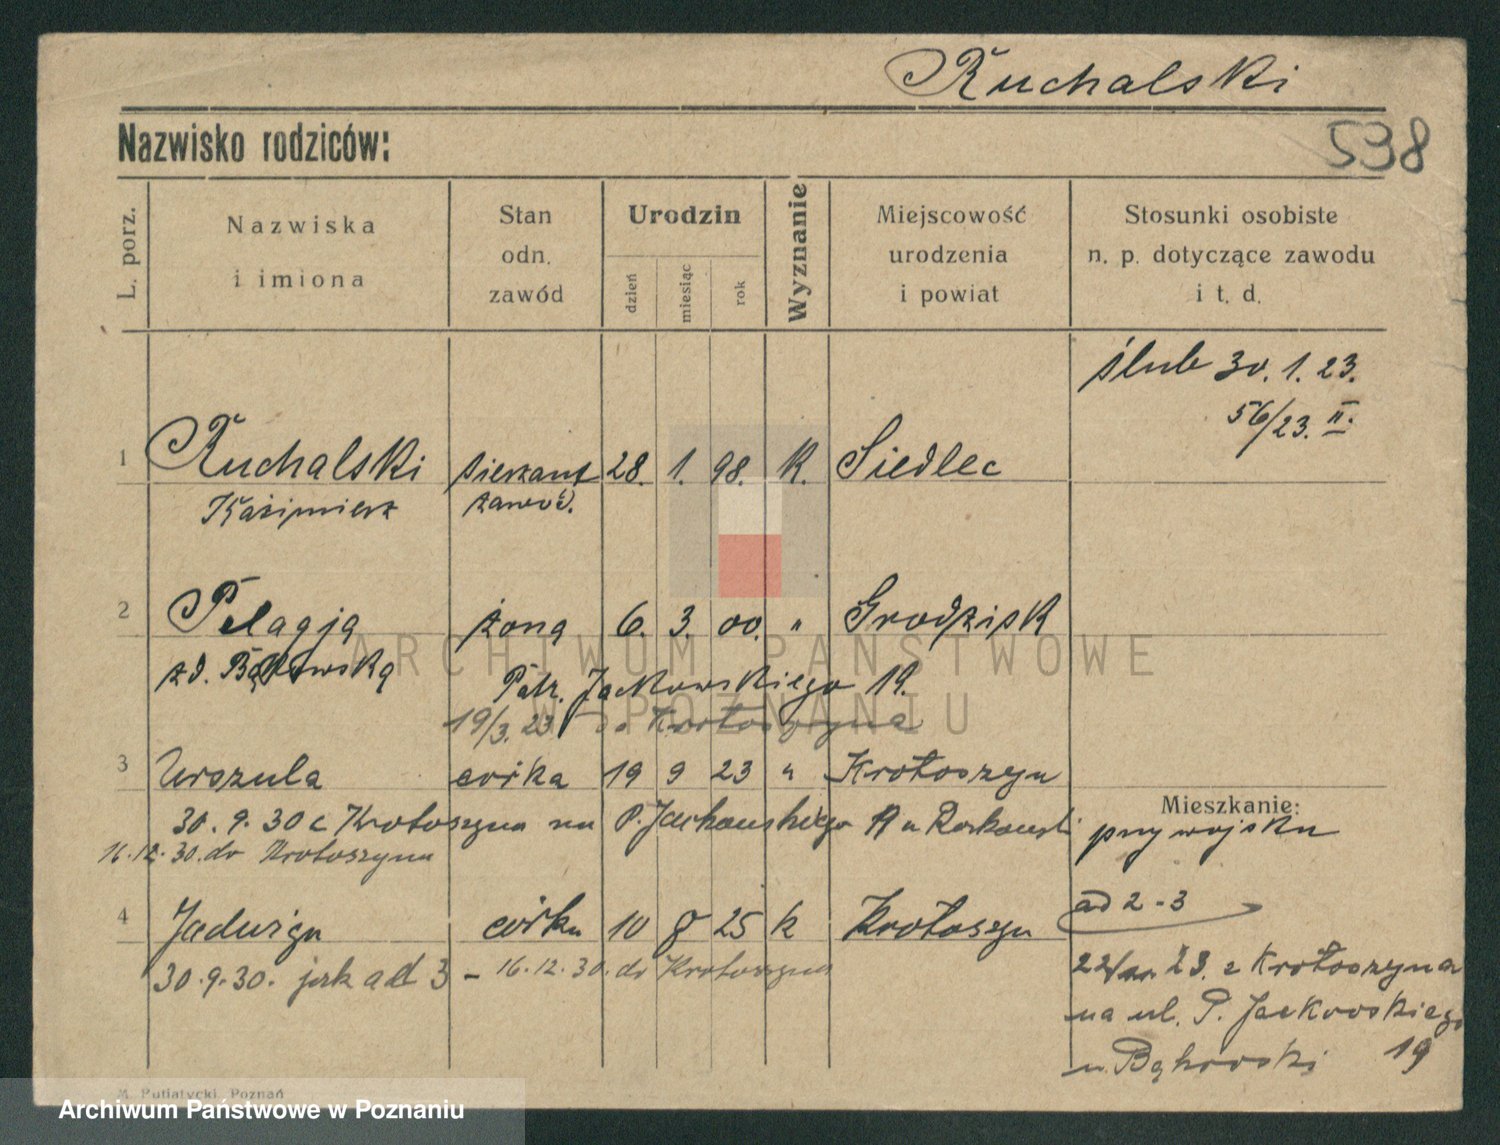 Ruchalski
538
Nazwisko rodziców:
L. porz.
Nazwiska
i imiona
Stan
odn.
zawód
Urodzin
dzień
miesiąc
rok
Wyznanie
Miejscowość
urodzenia
i powiat
Stosunki osobiste
n. p. dotyczące zawodu
i t. d.
ślub 30. 1. 23.
56/23. II.
1 Ruchalski sierżant 28. 1. 98. K. Siedlec
Kaźimierz zawod.
2 Pelagja żona 6. 3. 00. " Grodzisk
zd. Bąkowska
Patr. Jackowskiego 19.
19/3. 23 do Krotoszyna
3 Urszula córka 19 9 23 " Krotoszyn
30. 9. 30 z Krotoszyna na P. Jackowskiego 19 u
Mieszkanie:
przy wojsku
16. 12. 30. do Krotoszyna
4 Jadwiga córka 10 8 25 k Krotoszyn
ad 2-3
30. 9. 30. jak ad 3 – 16. 12. 30. do Krotoszyna
23. z Krotoszyna
na ul. P. Jackowskiego
19
u Bąkowski
M. Putiatycki, Poznań
ARCHIWUM PAŃSTWOWE
W POZNANIU
Archiwum Państwowe w Poznaniu